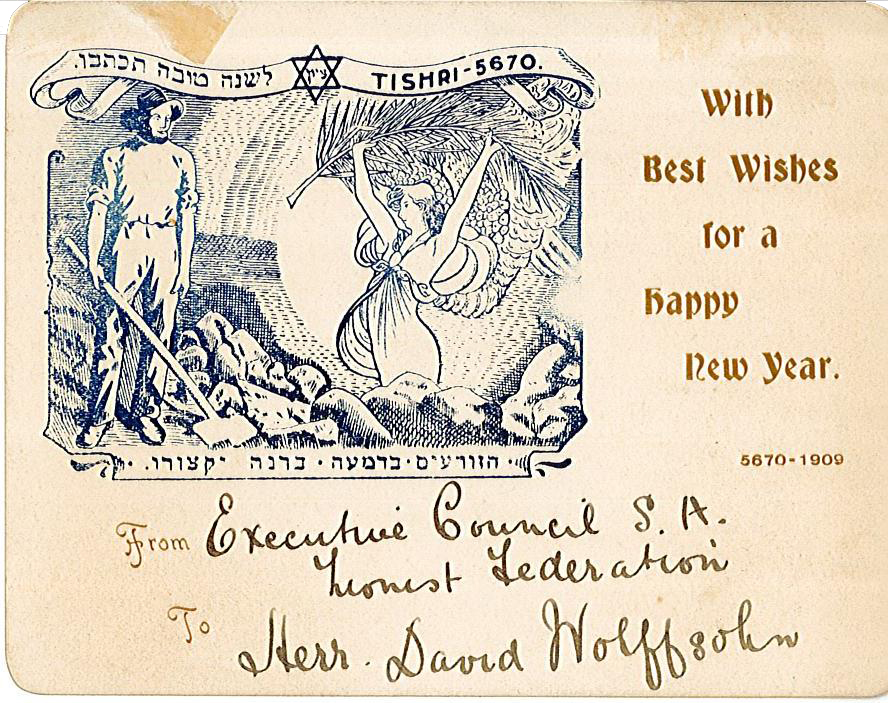 לשנה טובה תכתבו.
ציון
TISHRI-5670.
With
Best Wishes
for a
Happy
New Year.
5670-1909
הזורעים·בדמעה·ברנה יקצורו.
From Executive Council S. A.
Zionist Federation
To
Herr. David Wolffsohn